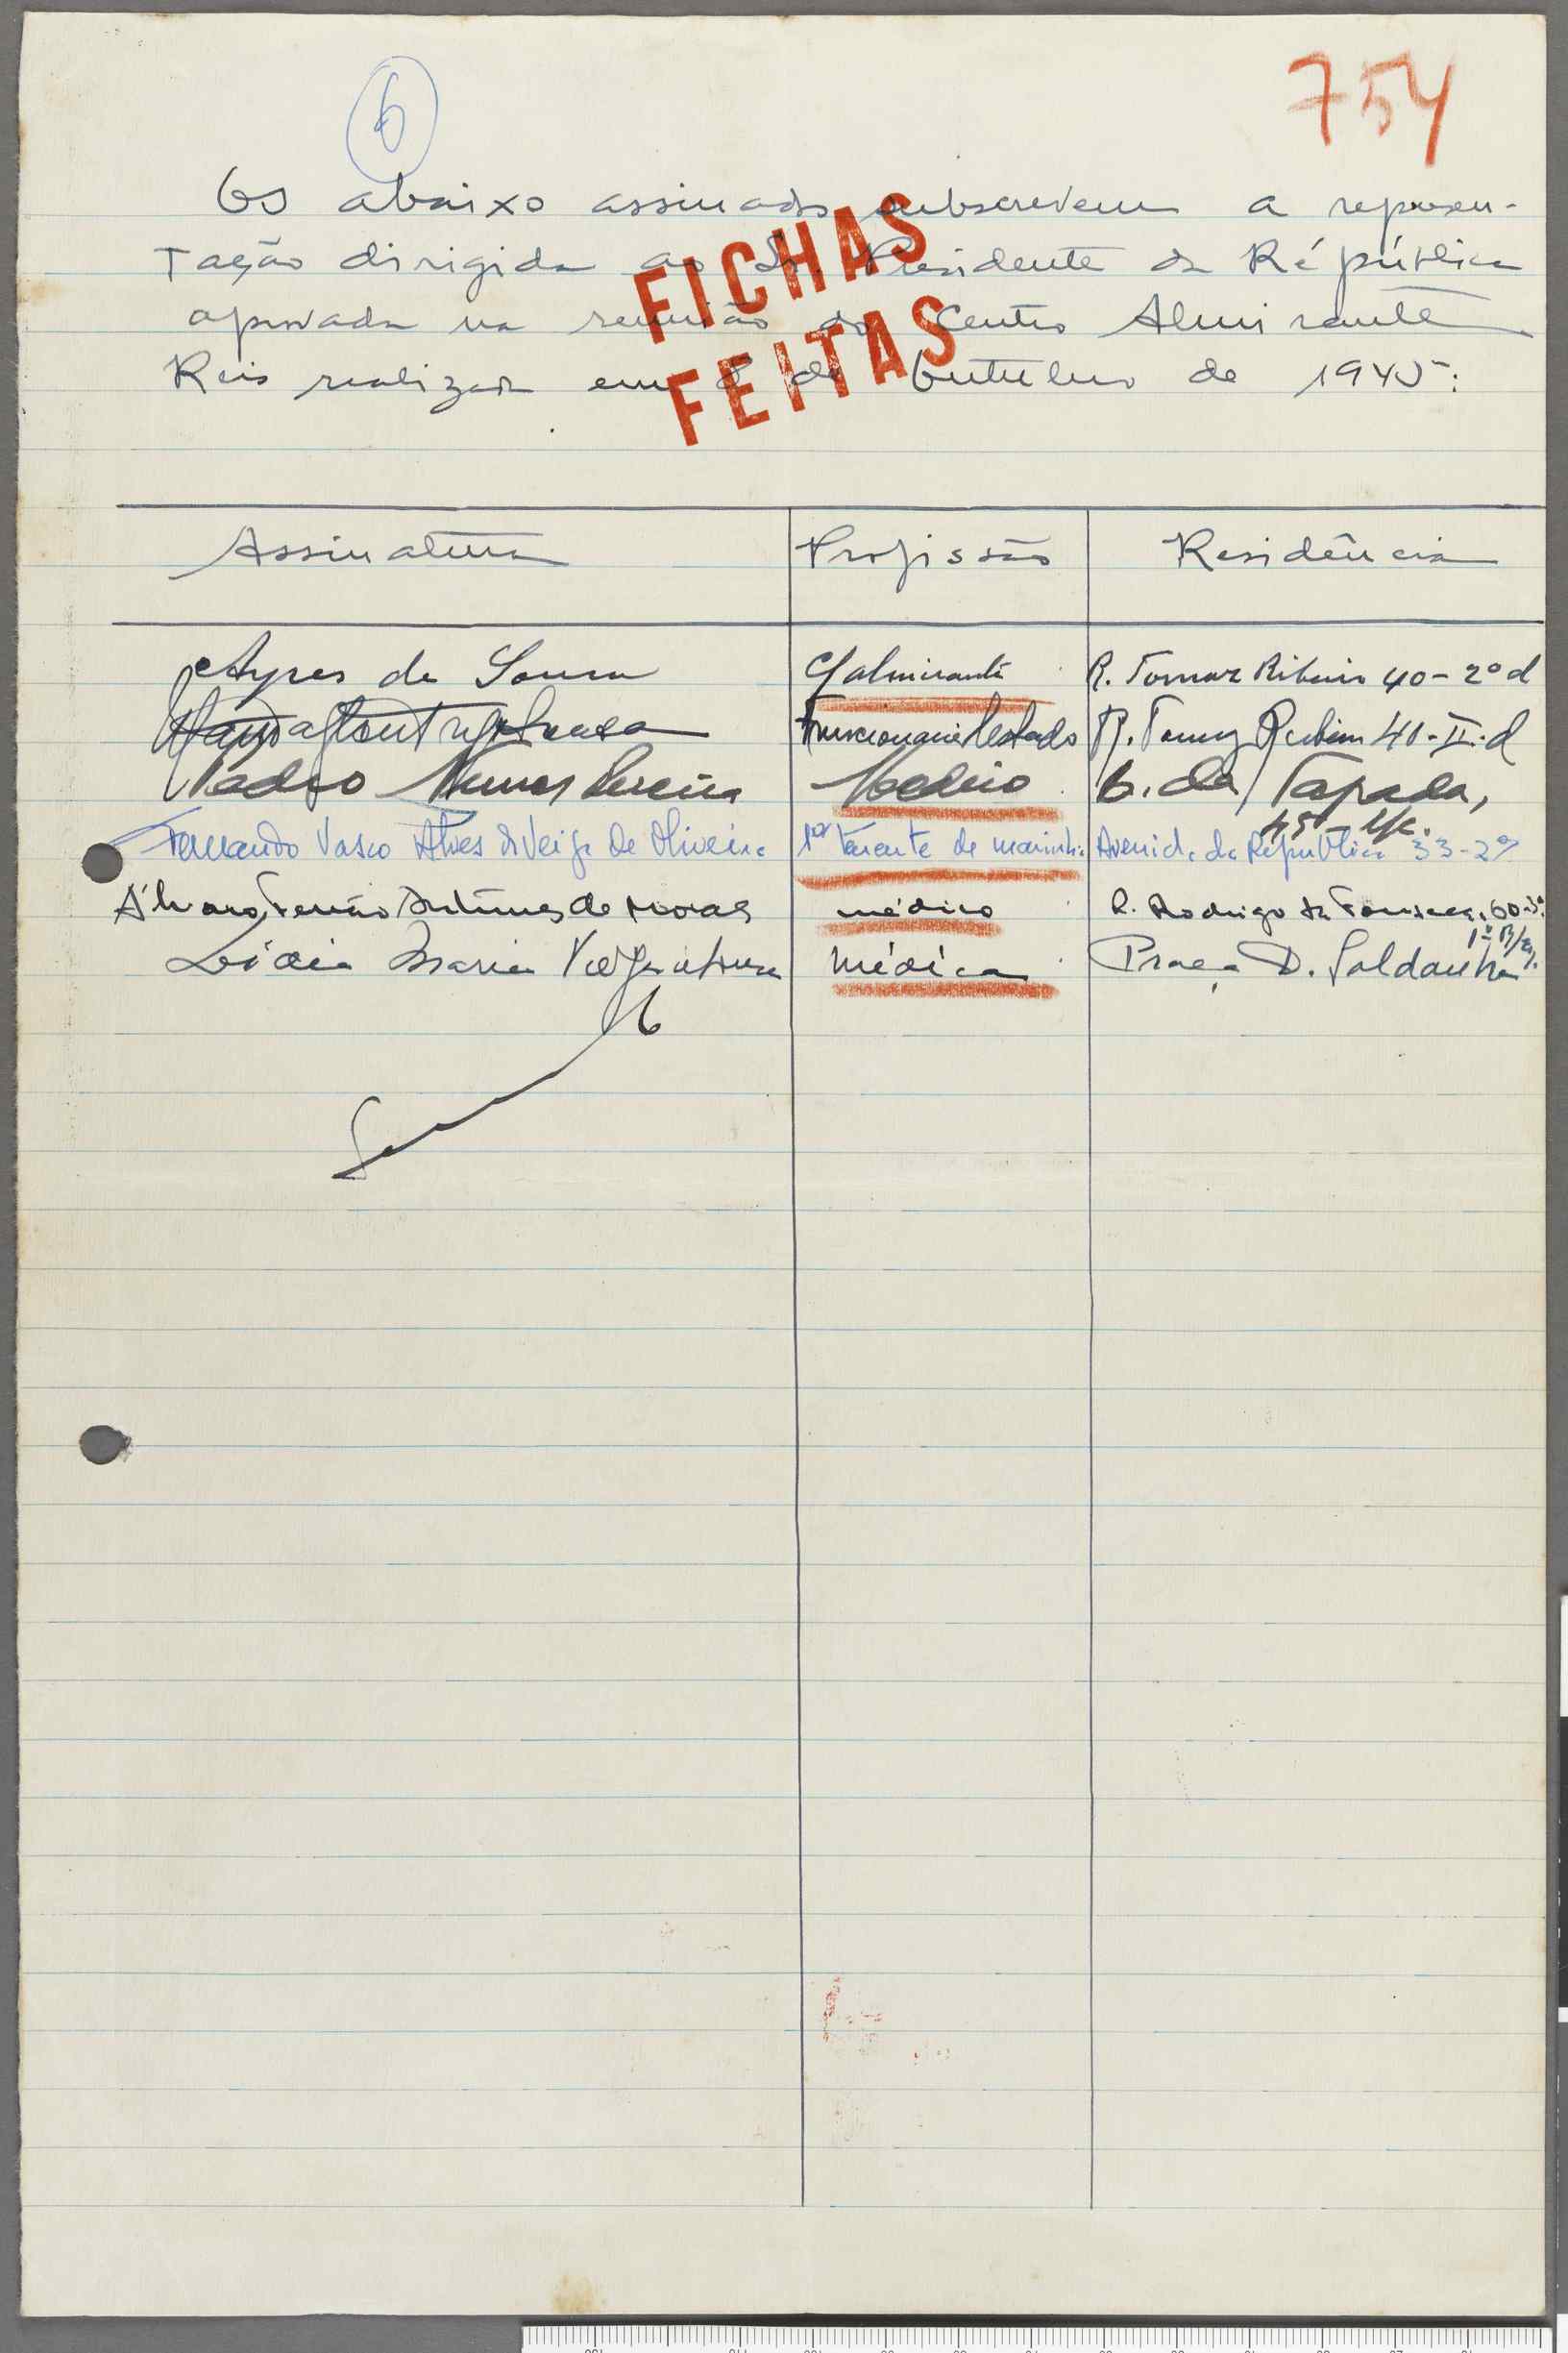 6
754
Os abaixo assinados subscrevem a represen-
tação dirigida ao Sr. Presidente da República
aprovada na reunião do Centro Almirante
Reis realizada em 8 de Outubro de 1945:
FICHAS
FEITAS
Assinatura Profissão Residência
Ayres de Sousa C/almirante R. Tomaz Ribeiro 40-2º d
Sousa Funcionario Estado R. Tomaz Ribeiro 40-II-d
Pedro Nunes Pereira Medico C. da Tapada,
45 - r/c.
Fernando Vasco Alves da Veiga de Oliveira 1º Tenente de marinha Avenida da República 33-2º
Álvaro Fernão Antunes de Morais médico R. Rodrigo da Fonseca, 60-3º
Lídia Maria Médica Praça D. Saldanha